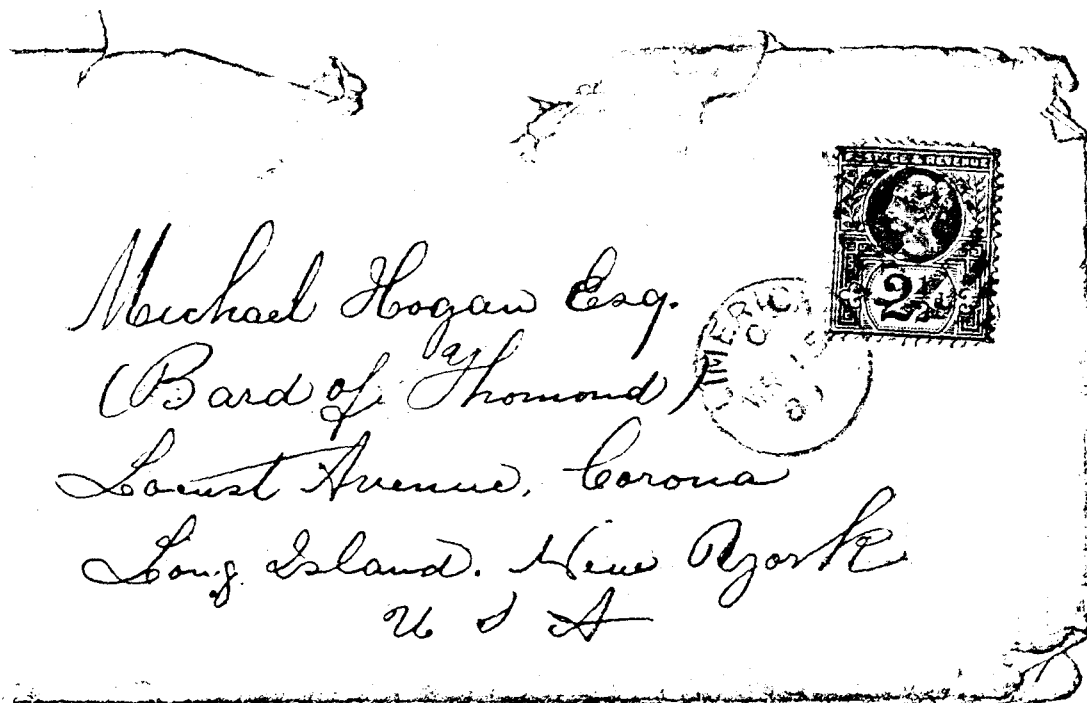 POSTAGE & REVENUE
2½
LIMERICK
Michael Hogan Esq.
(Bard of Thomond)
Locust Avenue, Corona
Long Island. New York
U S A